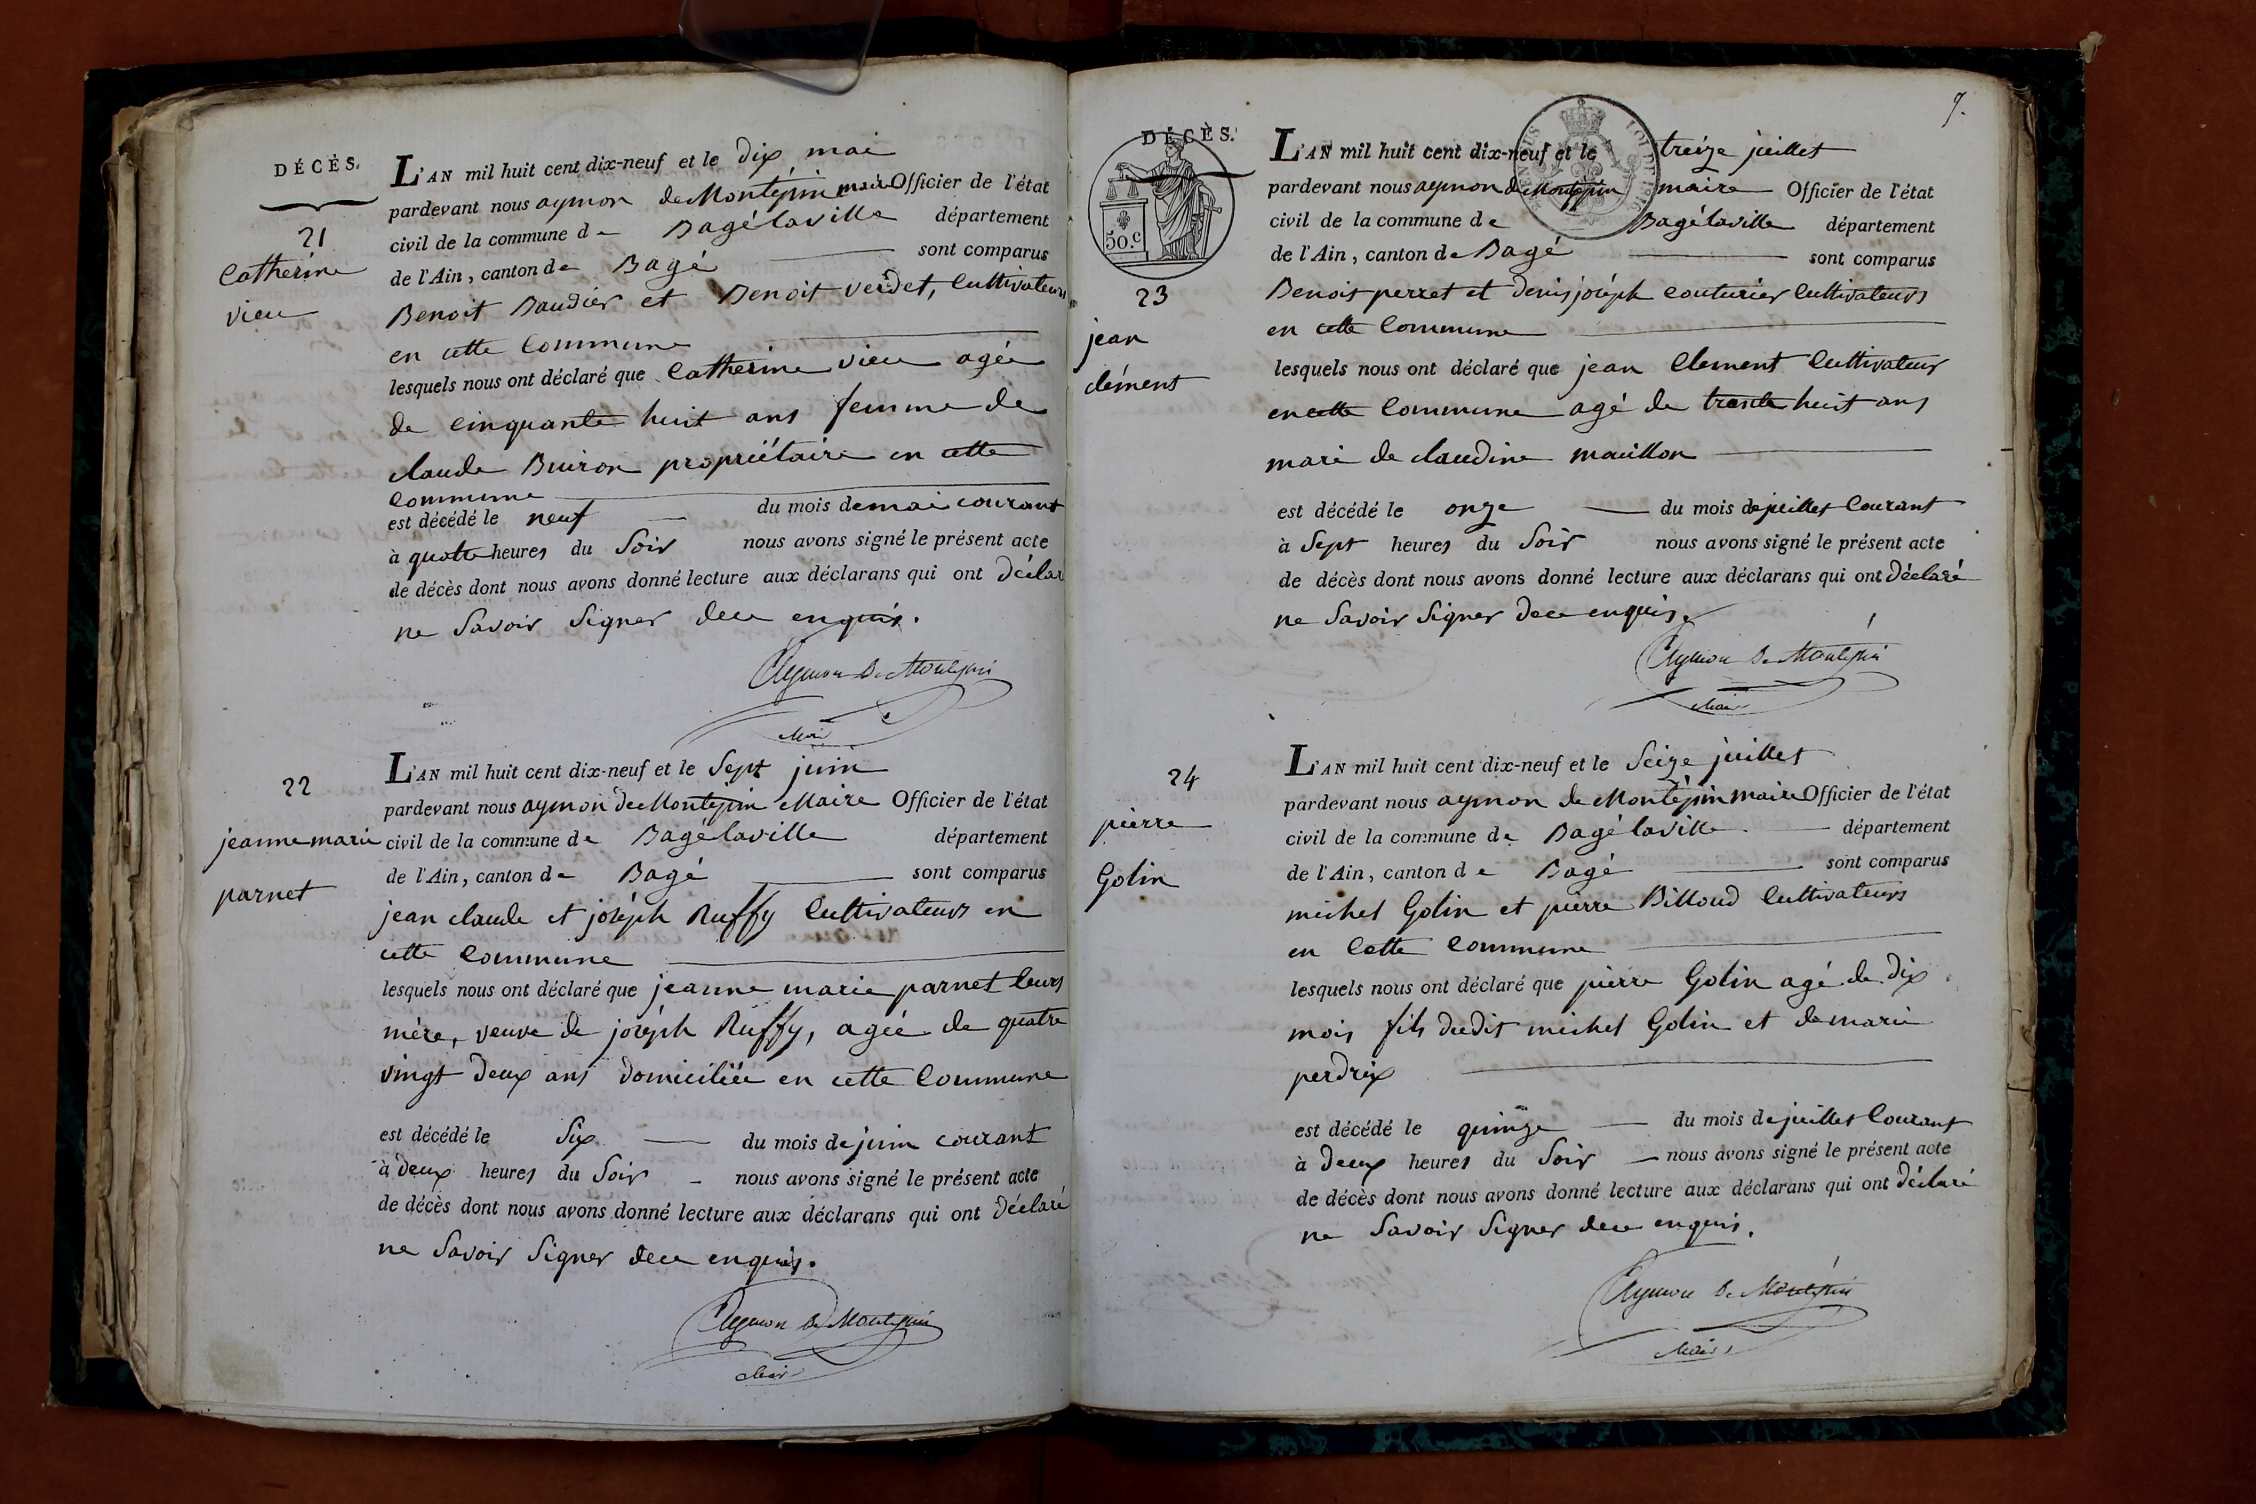 DÉCÈS.
21
Catherine
vieu
L'AN mil huit cent dix-neuf et le dix mai
pardevant nous aymon de Montépin maire Officier de l'état
civil de la commune de Bagé laville département
de l'Ain, canton de Bagé sont comparus
Benoit Baudier et Benoit verdet, cultivateurs
en cette commune
lesquels nous ont déclaré que Catherine vieu agée
de cinquante huit ans femme de
claude Buiron propriétaire en cette
commune
est décédé le neuf du mois de mai courant
à quatre heures du soir nous avons signé le présent acte
de décès dont nous avons donné lecture aux déclarans qui ont déclaré
ne savoir signer dece enquis.
Aymon De Montépin
Maire
22
jeanne marie
parnet
L'AN mil huit cent dix-neuf et le sept juin
pardevant nous aymon de Montépin Maire Officier de l'état
civil de la commune de Bagé laville département
de l'Ain, canton de Bagé sont comparus
jean claude et joséph Ruffy cultivateurs en
cette commune
lesquels nous ont déclaré que jeanne marie parnet leurs
mère, veuve de joséph Ruffy, agée de quatre
vingt deux ans domiciliée en cette commune
est décédé le six du mois de juin courant
à deux heures du soir nous avons signé le présent acte
de décès dont nous avons donné lecture aux déclarans qui ont déclaré
ne savoir signer dece enquis.
Aymon De Montépin
Maire
7.
DÉCÈS.
50.c
23
jean
clément
L'AN mil huit cent dix-neuf et le treize juillet
pardevant nous aymon de Montépin maire Officier de l'état
civil de la commune de Bagé laville département
de l'Ain, canton de Bagé sont comparus
Benoit perret et denis joséph couturier cultivateurs
en cette commune
lesquels nous ont déclaré que jean Clement cultivateur
en cette commune agé de trente huit ans
mari de claudine maillon
est décédé le onze du mois de juillet courant
à sept heures du soir nous avons signé le présent acte
de décès dont nous avons donné lecture aux déclarans qui ont déclaré
ne savoir signer dece enquis.
Aymon De Montépin
Maire
24
pierre
Golin
L'AN mil huit cent dix-neuf et le seize juillet
pardevant nous aymon de Montépin maire Officier de l'état
civil de la commune de Bagé laville département
de l'Ain, canton de Bagé sont comparus
michel Golin et pierre Billoud cultivateurs
en cette commune
lesquels nous ont déclaré que pierre Golin agé de dix
mois fils dudit michel Golin et de marie
perdrix
est décédé le quinze du mois de juillet courant
à deux heures du soir nous avons signé le présent acte
de décès dont nous avons donné lecture aux déclarans qui ont déclaré
ne savoir signer dece enquis.
Aymon De Montépin
Maire